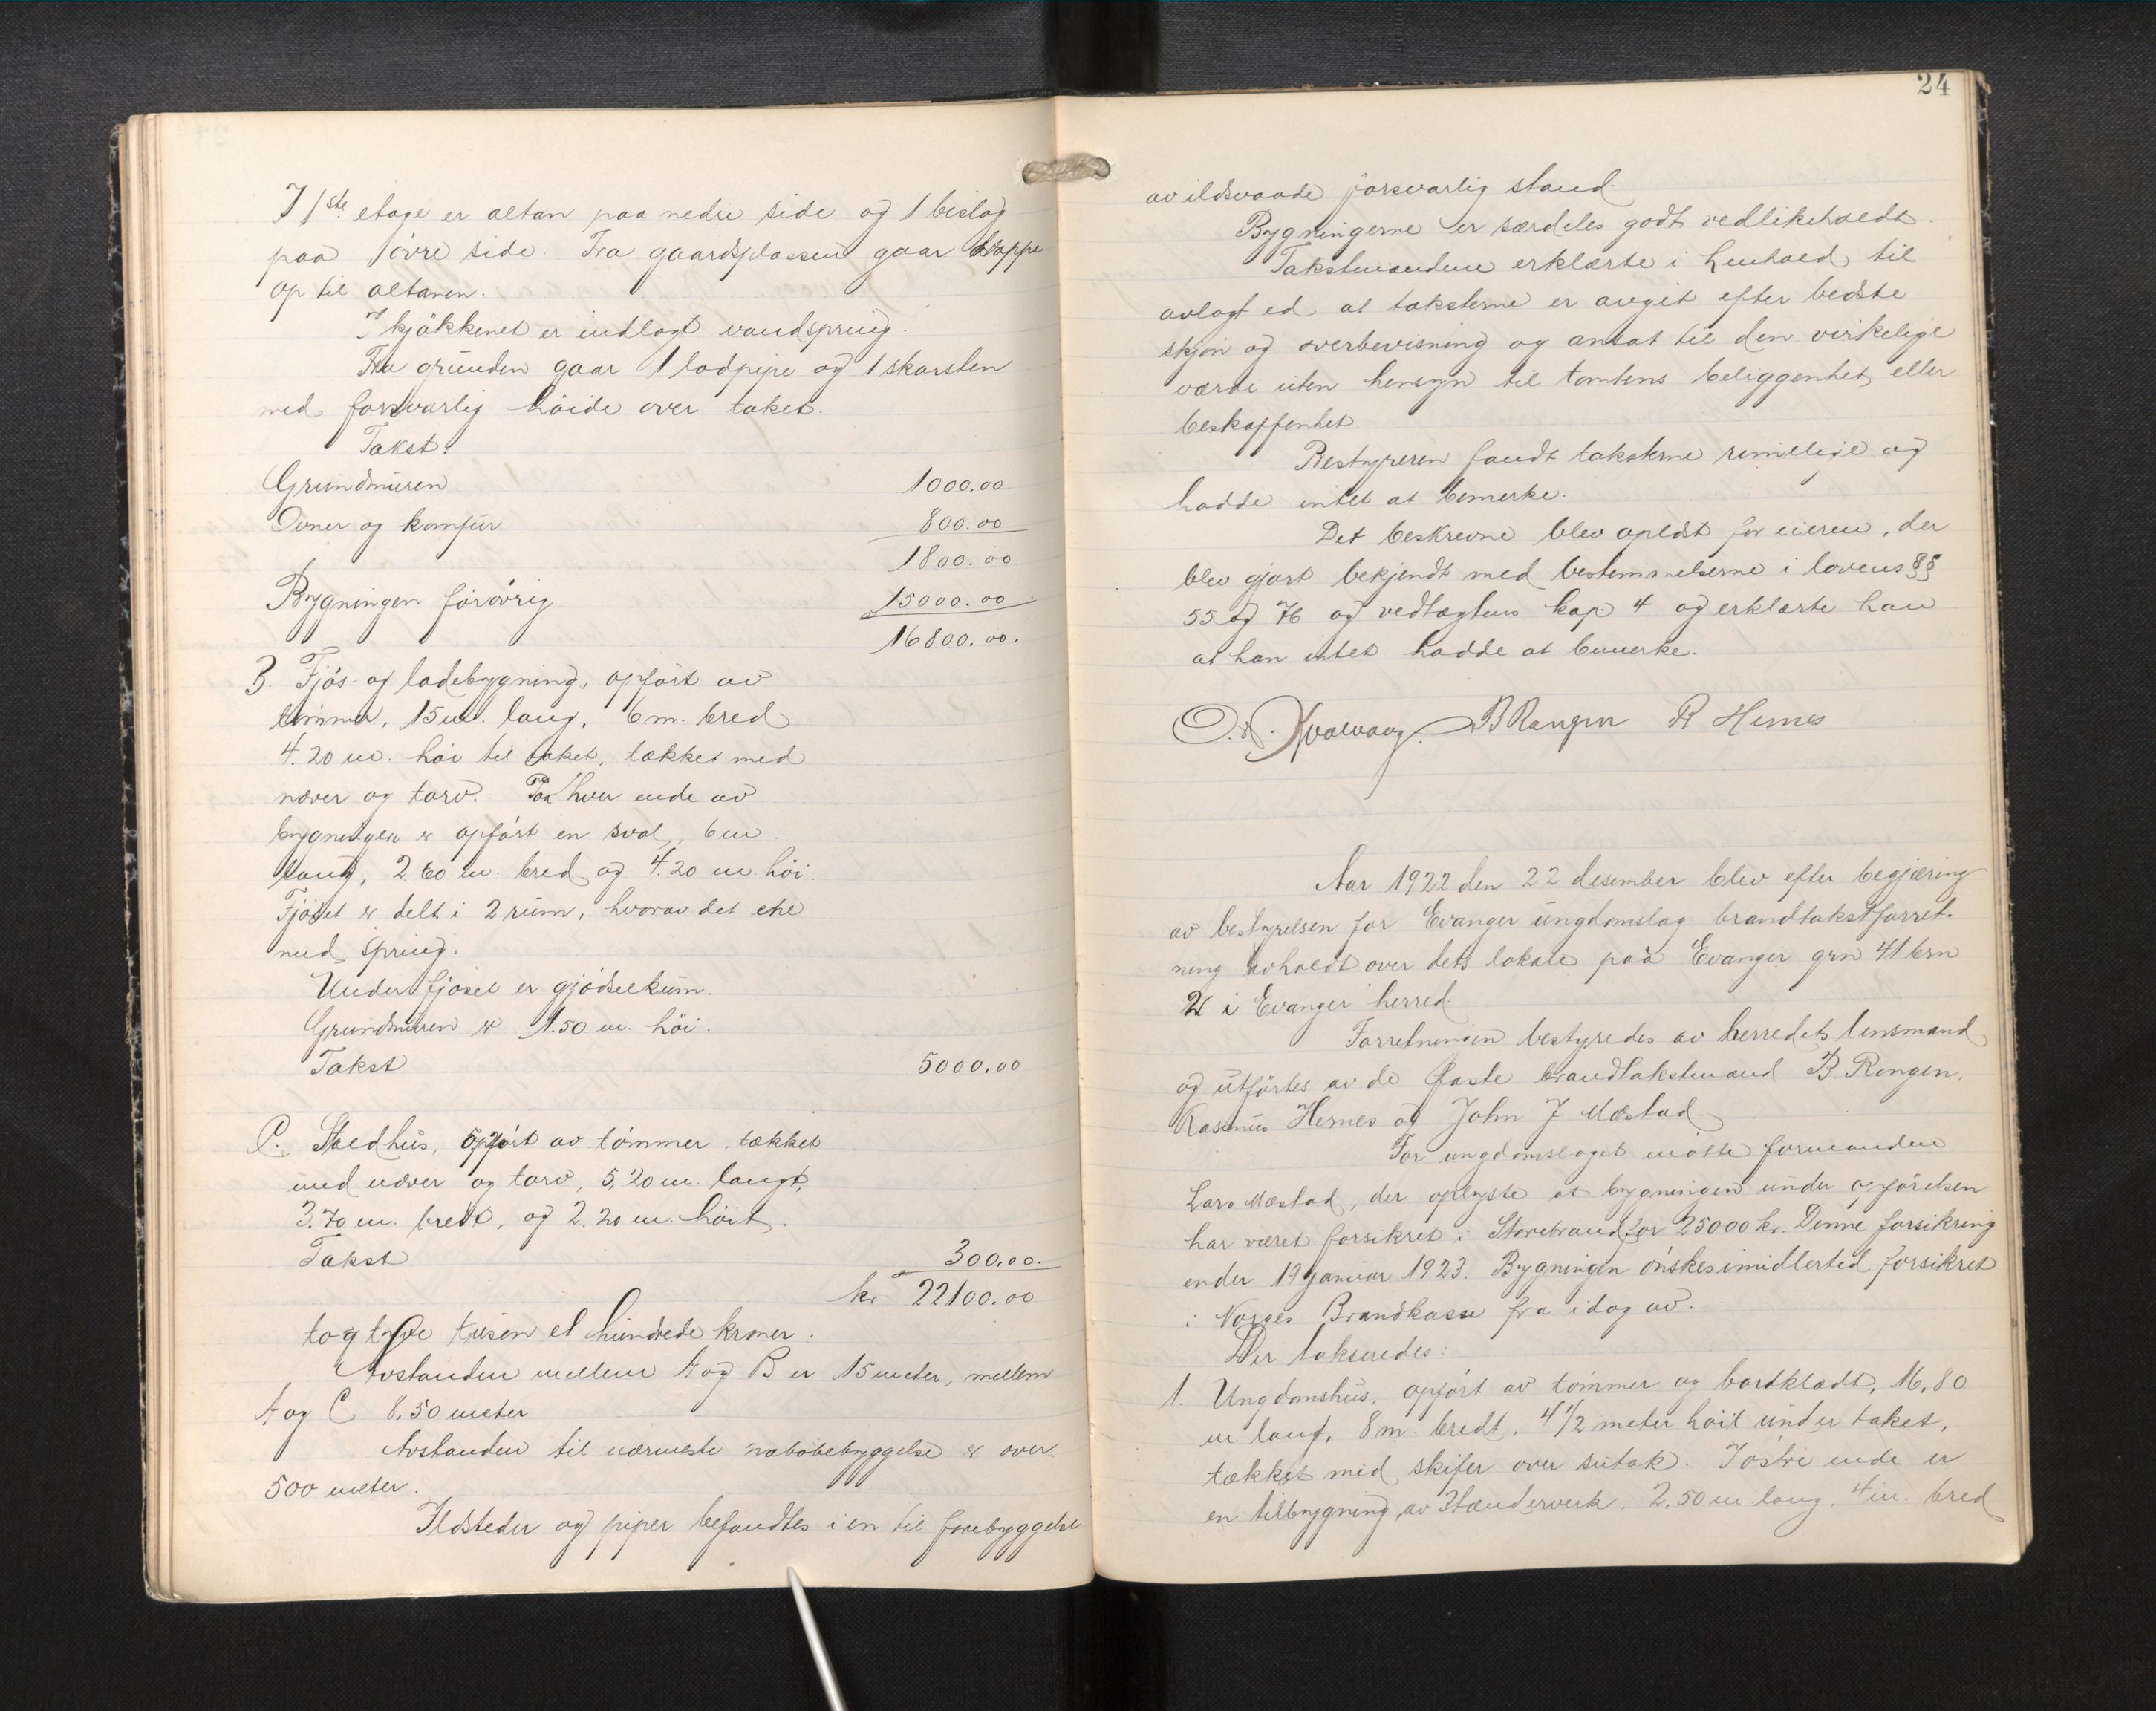 I 1ste etage er altan paa nedre side og 1 bislag
paa øvre side. Fra gaardsplassen gaar trappe
op til altanen.
I kjøkkenet er indlagt vandspring.
Fra grunden gaar 1 lodpipe og 1 skorsten
med forsvarlig høide over taket.
Takst:
Grundmuren 1000.00
Ovner og komfur 800.00
1800.00
Bygningen forøvrig 15000.00
16800.00.
B. Fjøs- og ladebygning, opført av
tømmer, 15 m. lang, 6 m. bred
4.20 m. høi til taket, tækket med
næver og torv. Paa hver ende av
bygningen er opført en sval, 6 m
lang, 2.60 m. bred og 4.20 m. høi.
Fjøset er delt i 2 rum, hvorav det ene
med spring.
Under fjøset er gjødselkum.
Grundmuren er 1.50 m. høi.
Takst 5000.00
C. Stedhus, opført av tømmer, tækket
med næver og torv, 5,20 m. langt,
3.70 m. bredt, og 2.20 m. høit.
Takst 300.00.
kr 22100.00
to og tyve tusen et hundrede kroner.
Avstanden mellem A og B er 15 meter, mellem
A og C 8.50 meter
Avstanden til nærmeste nabobebyggelse er over
500 meter.
Ildsteder og piper befandtes i en til forebyggelse
24
av ildsvaade forsvarlig stand.
Bygningerne er særdeles godt vedlikeholdt.
Takstmændene erklærte i henhold til
avlagt ed at taksterne er avgit efter bedste
skjøn og overbevisning og ansat til den virkelige
værdi uten hensyn til tomtens beliggenhet eller
beskaffenhet
Bestyreren fandt taksterne rimelige og
hadde intet at bemerke.
Det beskrevne blev oplæst for eieren, der
blev gjort bekjendt med bestemmelserne i lovens §§
55 og 76 og vedtægtens kap 4 og erklærte han
at han intet hadde at bemerke.
O. N. Kvalvaag. B Rongen R Hernes
Aar 1922 den 22 desember blev efter begjæring
av bestyrelsen for Evanger ungdomslag brandtakstforret-
ning avholdt over dets lokale paa Evanger grn 41 brn
21 i Evanger herred.
Forretningen bestyredes av herredets lensmand
og utførtes av de faste brandtakstmænd B. Rongen,
Rasmus Hernes og John J Mæstad
For ungdomslaget møtte formanden
Lars Mæstad, der oplyste at bygningen under opførelsen
har været forsikret i Storebrand for 25000 kr. Denne forsikring
ender 19 januar 1923. Bygningen ønskes imidlertid forsikret
i Norges Brandkasse fra idag av.
Der takseredes:
1. Ungdomshus, opført av tømmer og bordklædt, 16,80
m langt, 8 m. bredt, 4 1/2 meter høit under taket,
tækket med skifer over sutak. I østre ende er
en tilbygning av Stænderverk, 2.50 m lang, 4 m. bred